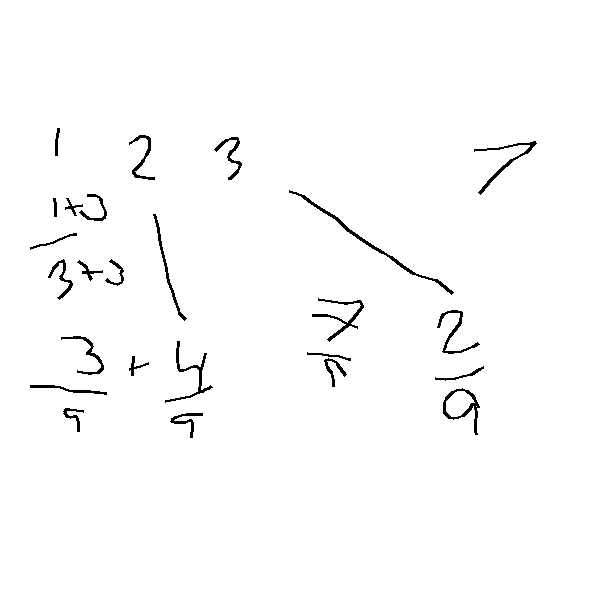 1 2 3 7
1+3
3+3
3/9 + 4/9 7/n 2/9